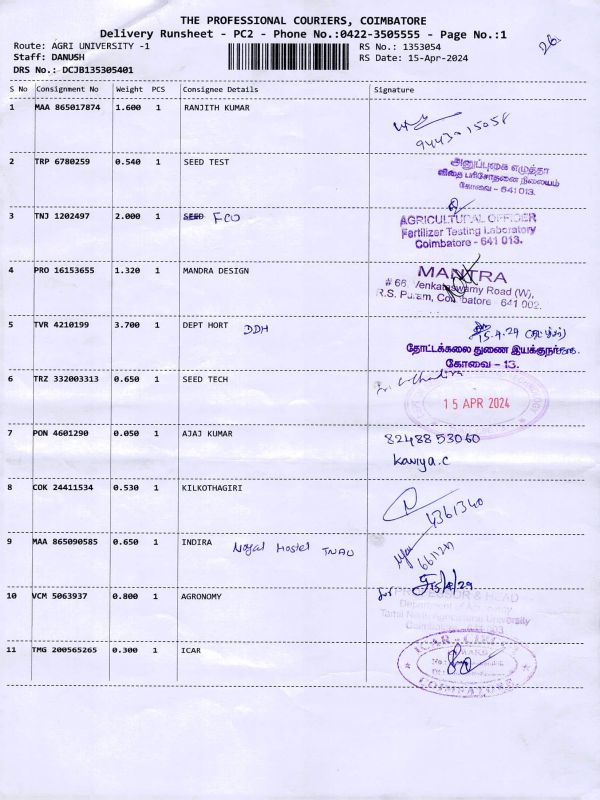 THE PROFESSIONAL COURIERS, COIMBATORE
Delivery Runsheet - PC2 - Phone No.:0422-3505555 - Page No.:1
Route: AGRI UNIVERSITY -1 RS No.: 1353054
Staff: DANUSH RS Date: 15-Apr-2024
DRS No.: DCJB135305401
26
S No Consignment No Weight PCS Consignee Details Signature
1 MAA 865017874 1.600 1 RANJITH KUMAR
9443015058
2 TRP 6780259 0.540 1 SEED TEST
அனுப்புகை எழுத்தர்
விதை பரிசோதனை நிலையம்
கோவை - 641 013.
3 TNJ 1202497 2.000 1 SEED FCO
AGRICULTURAL OFFICER
Fertilizer Testing Laboratory
Coimbatore - 641 013.
4 PRO 16153655 1.320 1 MANDRA DESIGN
MANTRA
# 66, Venkataswamy Road (W),
R.S. Puram, Coimbatore 641 002.
5 TVR 4210199 3.700 1 DEPT HORT DDH
தோட்டக்கலை துணை இயக்குநர்
கோவை - 13.
6 TRZ 332003313 0.650 1 SEED TECH
15 APR 2024
7 PON 4601290 0.050 1 AJAJ KUMAR
8248853060
Kaviya.C
8 COK 24411534 0.530 1 KILKOTHAGIRI
4361340
9 MAA 865090585 0.650 1 INDIRA Noyal Hostel TNAU
10 VCM 5063937 0.800 1 AGRONOMY
PROFESSOR & HEAD
Department of Agronomy
Tamil Nadu Agricultural University
Coimbatore
11 TMG 200565265 0.300 1 ICAR
COIMBATORE